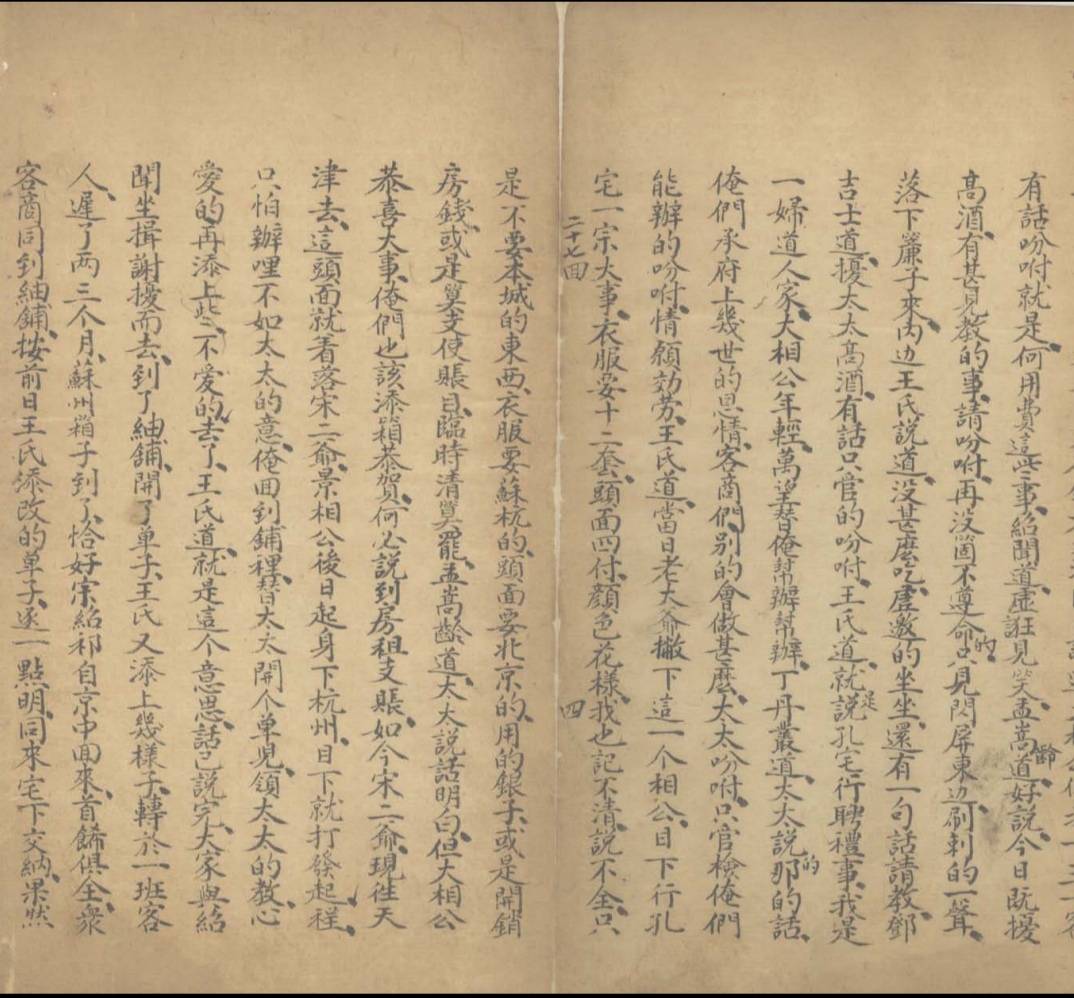 有話吩咐就是何用費這些事紹聞道虛誑見笑孟嵩齡道好說今日既擾
高酒有甚見教的事請吩咐再没箇不遵命的只見閃屏東边刷剌的一聲
落下簾子來內边王氏説道没甚麽吃虛邀的坐坐還有一句話請教鄧
吉士道擾太太高酒有話只管的吩咐王氏道就是說孔宅行聘禮事我是
一婦道人家大相公年輕萬望替俺幫辦幫辦丁丹叢道太太説那的的話
俺們承府上幾世的恩情客商們別的會做甚麽太太吩咐只管檢俺們
能辦的吩咐情願効劳王氏道當日老大爺撇下這一个相公目下行孔
宅一宗大事衣服要十二套頭面四付顔色花樣我也記不清説不全只
二十七回
四
是不要本城的東西衣服要蘇杭的頭面要北京的用的銀子或是開銷
房錢或是算支使賬目臨時清算罷孟嵩齡道太太説話明白但大相公
恭喜大事俺們也該添箱恭賀何必説到房租支賬如今宋二爺現徃天
津去這頭面就着落宋二爺景相公後日起身下杭州目下就打發起程
只怕辦哩不如太太的意俺回到鋪裡替太太開个单兒領太太的教心
愛的再添上些不愛的去了王氏道就是這个意思話已説完大家與紹
聞坐揖謝擾而去到了紬鋪開了单子王氏又添上幾樣子轉於一班客
人遲了两三个月蘇州箱子到了恰好宋紹祁自京中回來首餙俱全衆
客商同到紬鋪按前日王氏添改的单子逐一點明同來宅下交納果然